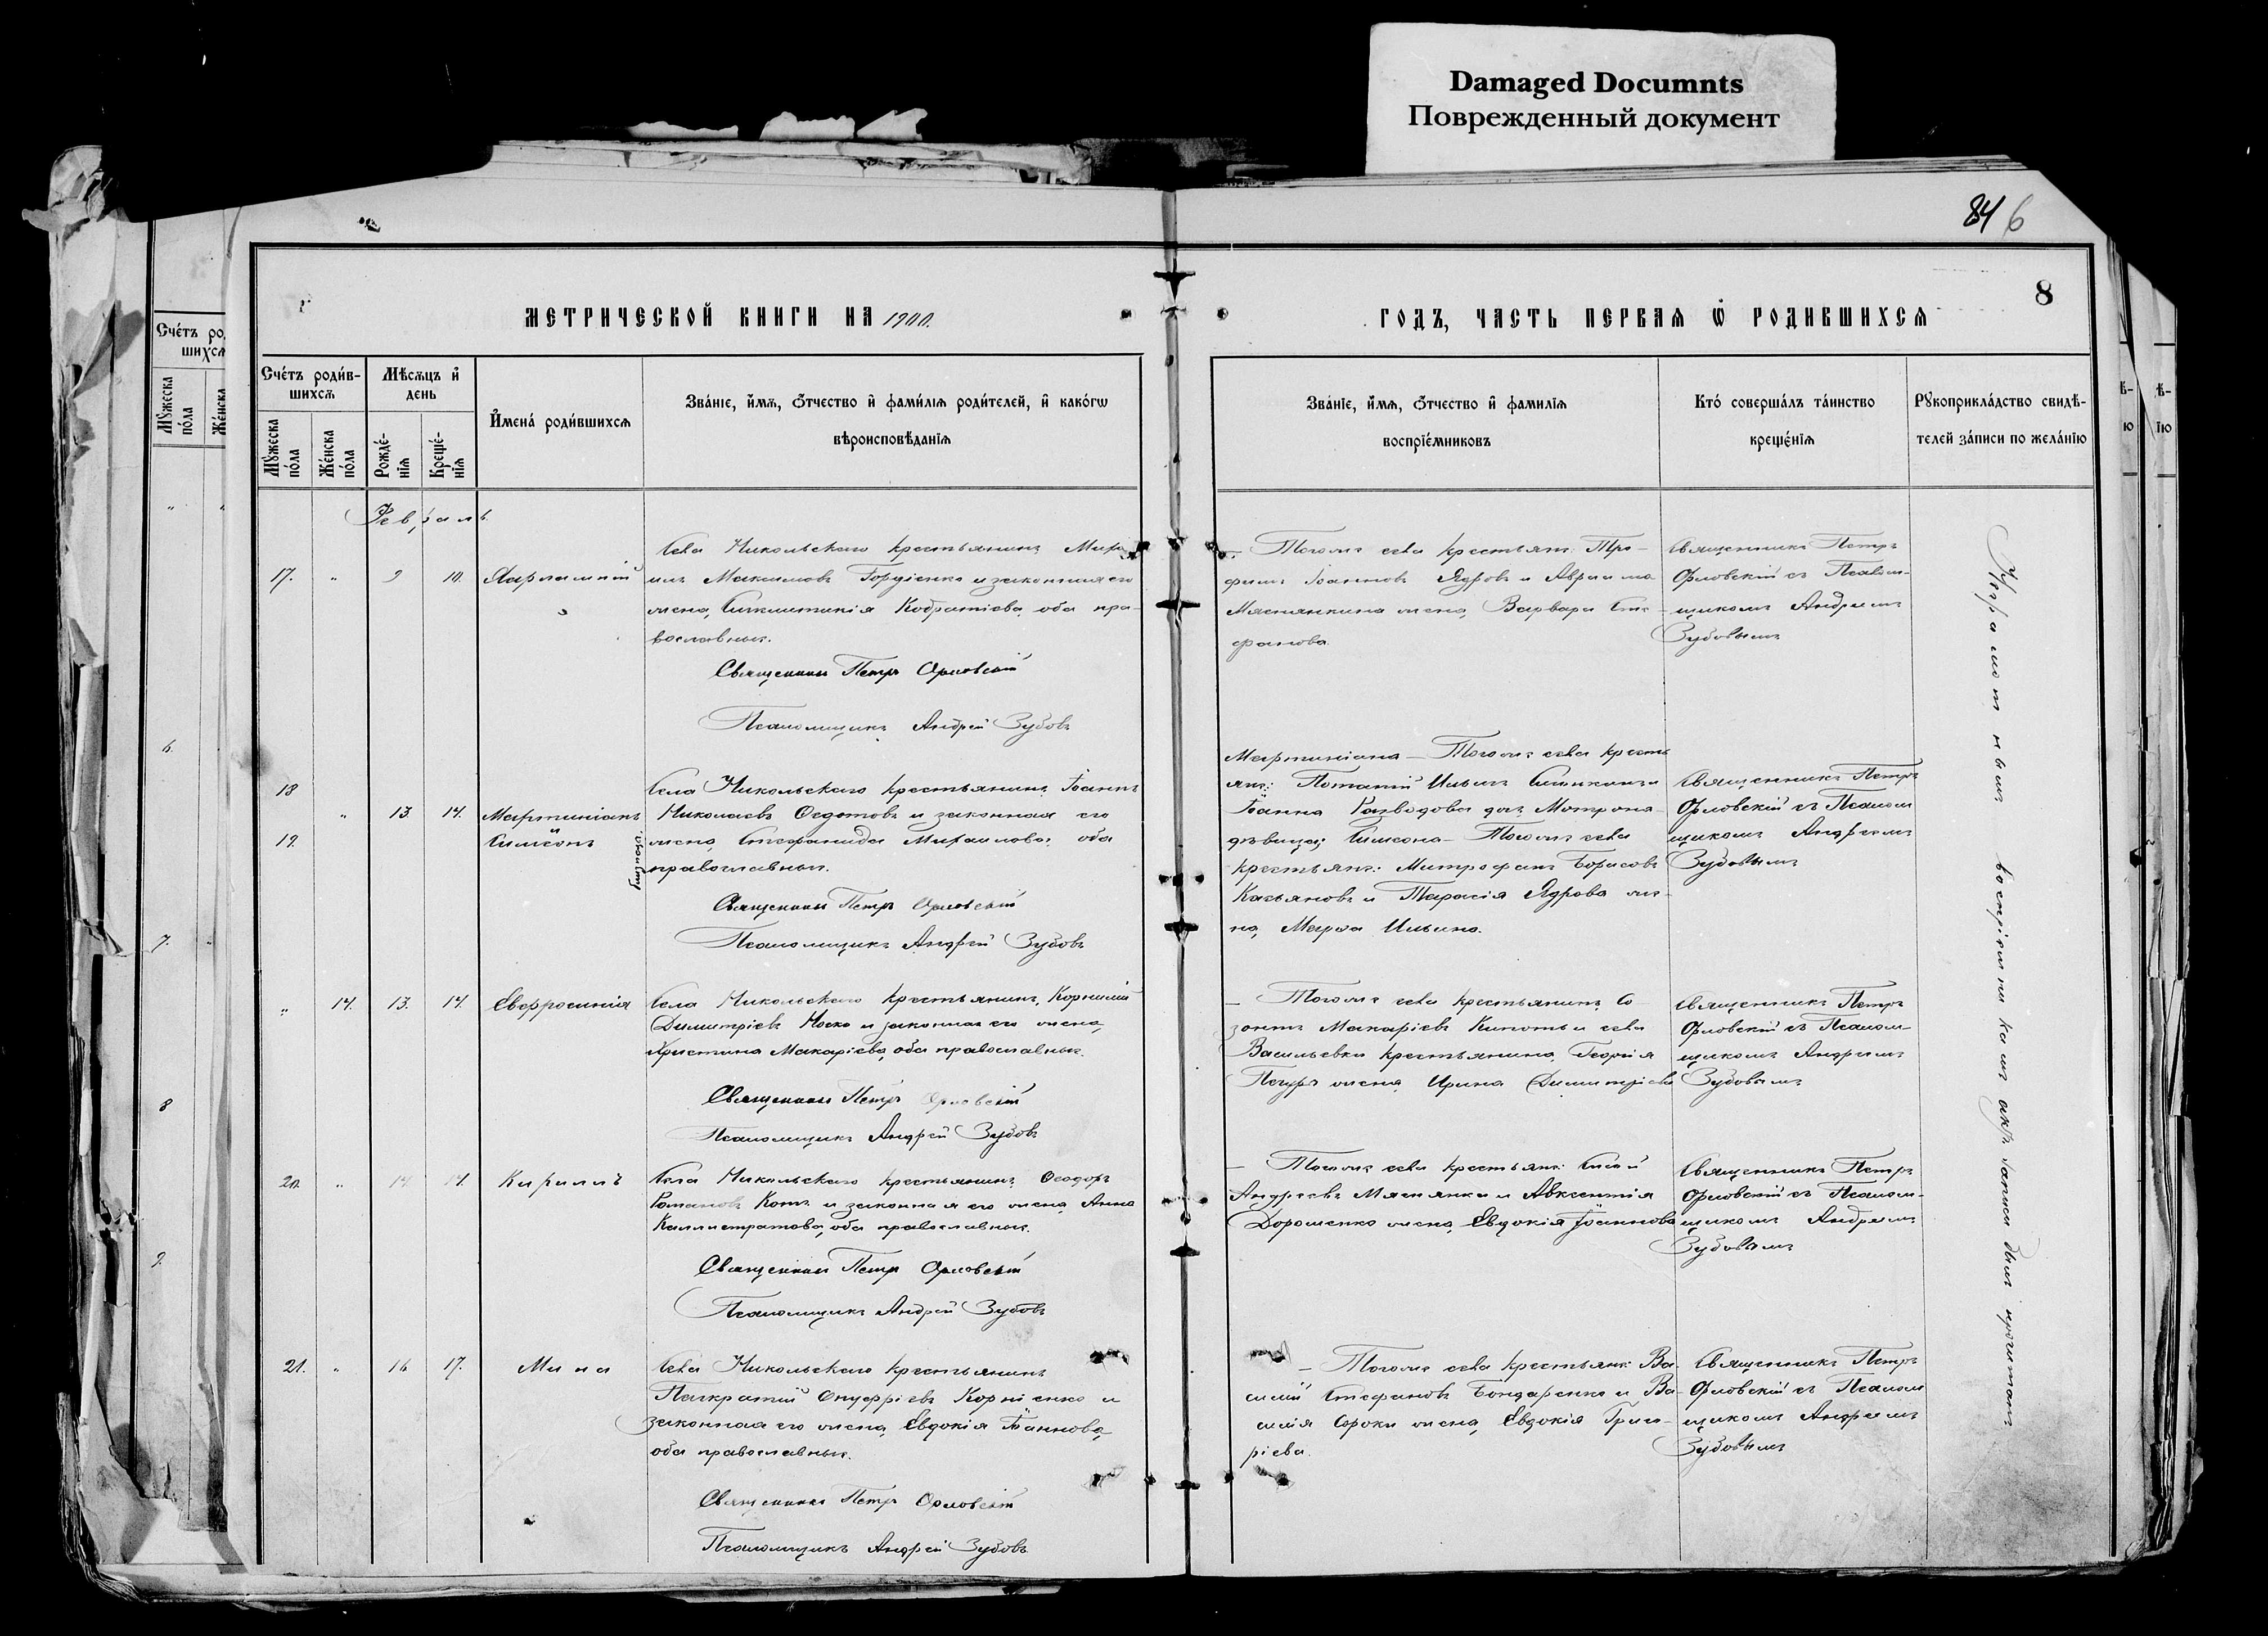 Damaged Documnts
Поврежденный документ
84 6
8
МЕТРИЧЕСКОЙ КНИГИ НА 1900.
ГОДЪ, ЧАСТЬ ПЕРВАЯ Ѡ РОДИВШИХСЯ
Счетъ родившихся
Мѣсяцъ и день
Имена родившихся
Званіе, имя, отчество и фамилія родителей, и какогѡ
вѣроисповѣданія
Мужеска пола
Женска пола
Рожденія
Крещенія
Званіе, имя, отчество и фамилія
воспріемниковъ
Кто совершалъ таинство
крещенія
Рукоприкладство свидѣ-
телей записи по желанію
Февраль
17. " 9 10. Харлампій
Села Никольскаго крестьянинъ
илъ Максимовъ Гордіенко и законная его
жена, Синклитикія Кодратіева, оба пра-
вославные.
Священникъ Петръ Орловскій
Псаломщикъ Андрей Зубовъ
Тогоже села крестьян: Тро-
фимъ Іоанновъ Ядровъ и Авраама
Мяснянкина жена, Варвара Сте-
фанова.
Священникъ Петръ
Орловскій съ Псалом-
щикомъ Андреемъ
Зубовымъ
18
" 13. 14. Мартиніанъ
19. Симеонъ
Села Никольскаго крестьянинъ Іоаннъ
Николаевъ Федотовъ и законная его
жена, Стефанида Михаилова, оба
православные.
Священникъ Петръ Орловскій
Псаломщикъ Андрей Зубовъ
Мартиніана — Тогоже села кресть
ян: Потапій Ильинъ и
Іоанна дочь Матрона
дѣвица; Симеона — Тогоже села
крестьян: Митрофанъ Борисовъ
Касьяновъ и Тарасія Ядрова же-
на, Марѳа Ильина.
Священникъ Петръ
Орловскій съ Псалом
щикомъ Андреемъ
Зубовымъ
" 14. 13. 14. Евфросинія
Села Никольскаго крестьянинъ, Корнилій
Димитріевъ Носко и законная его жена,
Христина Макаріева, оба православные.
Священникъ Петръ Орловскій
Псаломщикъ Андрей Зубовъ
— Тогоже села крестьянинъ, Со-
зонтъ Макаріевъ и села
Васильевки крестьянина, Георгія
жена, Ирина Димитріева
Священникъ Петръ
Орловскій съ Псалом-
щикомъ Андреемъ
Зубовымъ
20. " 14 14. Кириллъ
Села Никольскаго крестьянинъ, Ѳеодоръ
Романовъ Котъ и законная его жена, Анна
Каллистратова, оба православные.
Священникъ Петръ Орловскій
Псаломщикъ Андрей Зубовъ
— Тогоже села крестьян:
Андреевъ Мяснянкин и Авксентія
Дорошенко жена, Евдокія Іоаннова
Священникъ Петръ
Орловскій съ Псалом-
щикомъ Андреемъ
Зубовымъ
21. " 16 17. Мина
Села Никольскаго крестьянинъ
Панкратій Онуфріевъ Корніенко и
законная его жена, Евдокія Іоаннова,
оба православные.
Священникъ Петръ Орловскій
Псаломщикъ Андрей Зубовъ
— Тогоже села крестьян: Ва-
силій Стефановъ Бондаренко и Ва-
силія Сороки жена, Евдокія Григо-
ріева.
Священникъ Петръ
Орловскій съ Псалом
щикомъ Андреемъ
Зубовымъ
воспріемникомъ актъ записи былъ прочитанъ